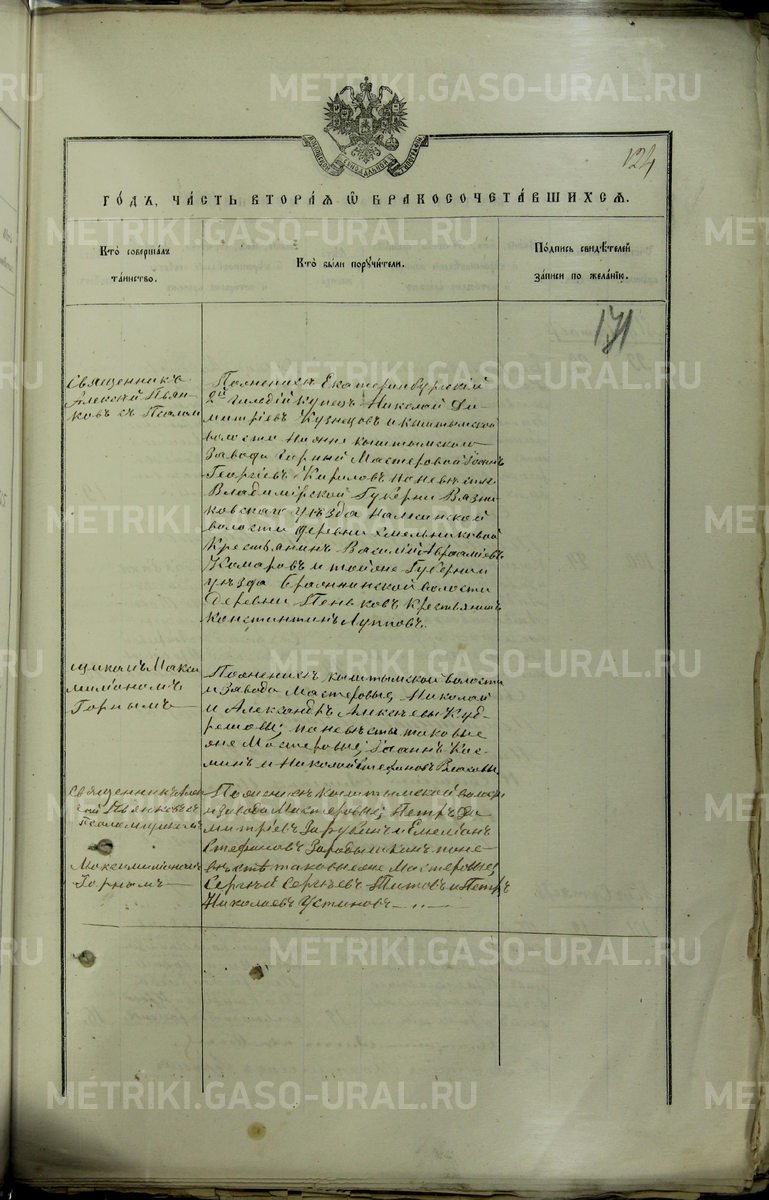 METRIKI.GASO-URAL.RU
124
ГО́ДЪ, ЧА́СТЬ ВТОРА́Я Ѡ БРАКОСОЧЕТА́ВШИХСЯ.
Кто̀ соверша́лъ
та́инство.
Кто̀ бы́ли порꙋчи́тели.
По́дпись свидѣ́телей
за́писи по жела́нїю.
171
Священникъ
Алексѣй Пьян-
ковъ съ Псалом
По женихѣ Екатеринбургскій
2й гильдіи купецъ Николай Ди-
митріевъ Кузнецовъ и Кыштымской
волости Нижне Кыштымскаго
завода горный Мастеровой Іоаннъ
Георгіевъ Кириловъ по невѣстѣ
Владимірской Губерни Вязни-
ковскаго уѣзда
волости деревни Хмельниковой
Крестьянинъ Василій Авраамьевъ
Комаровъ и той же Губерніи
уѣзда волости
Деревни Пеньковъ Крестьянинъ
Константинъ Лупповъ.
щикомъ Макси
миліаномъ
Горнымъ
По женихѣ Кыштымской волости
и завода Мастеровые, Николай
и Александръ Алексѣевы
по невѣсты таковые
же Мастеровые, Іоаннъ Кос-
минъ и Николай Стефановъ
Священникъ Алек
сѣй Пьянковъ съ
Псаломщикомъ
Максимиліаномъ
Горнымъ
По женихѣ Кыштымской волости
и завода Мастеровые, Петръ Ди
митріевъ Зарубинъ и Емеліанъ
Стефановъ по не-
вѣстѣ таковые же Мастеровые,
Сергѣй Сергѣевъ Титовъ и Петръ
Николаевъ Устиновъ